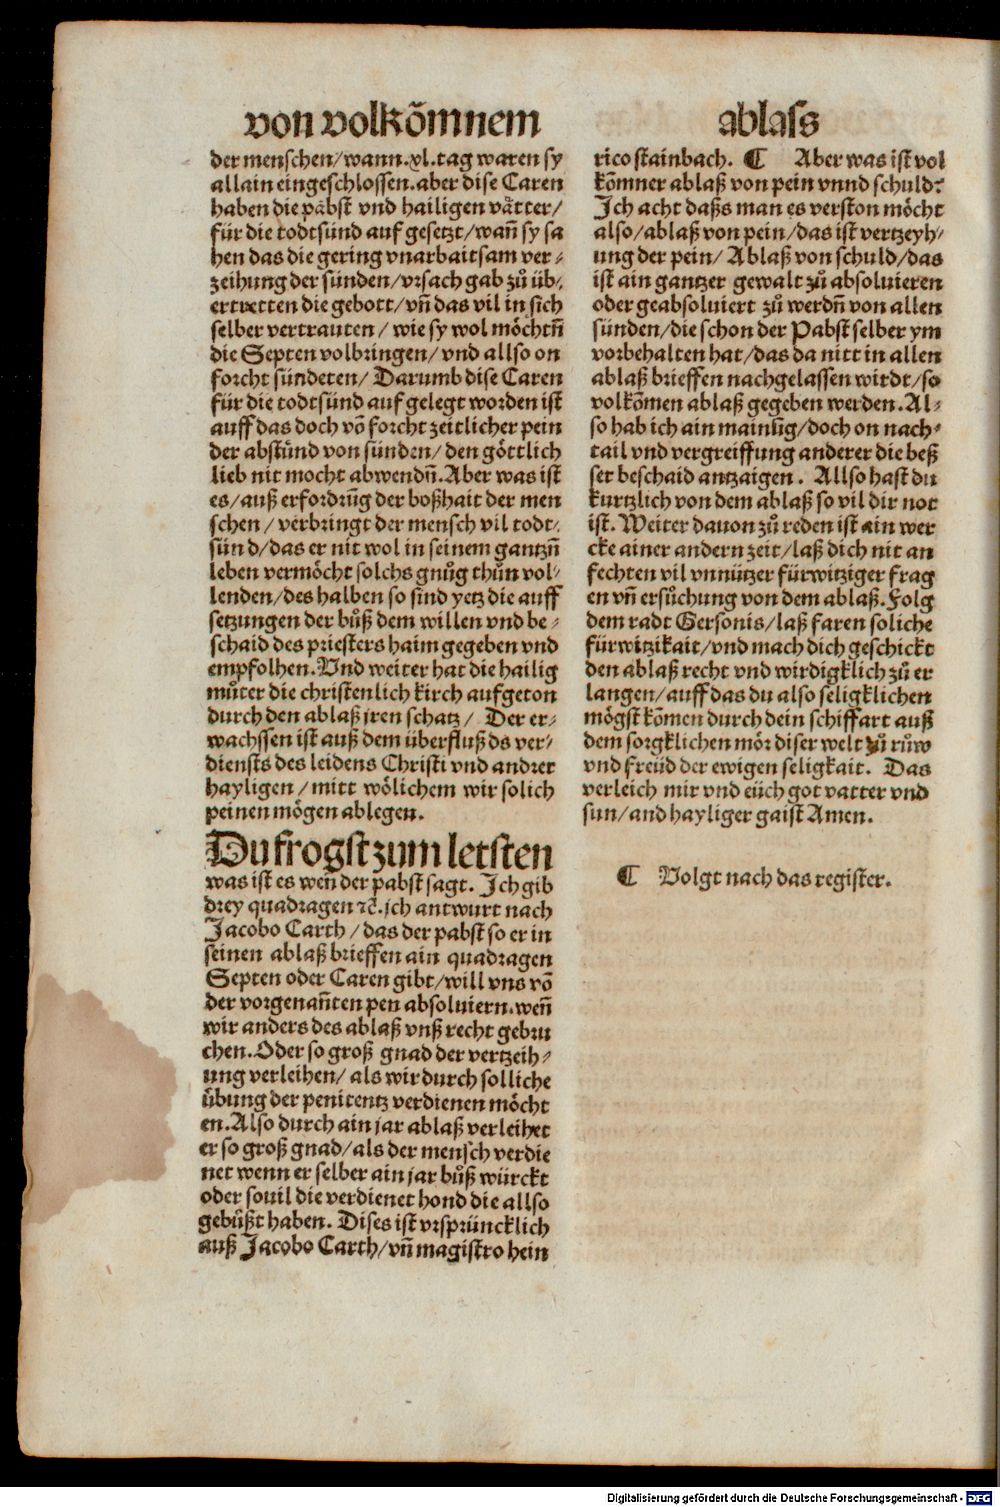 von volkõmnem
der menschen/wann.xl.tag waren sy
allain eingeschlossen.aber dise Caren
haben die päbst vnd hailigen vätter/
für die todtsünd auf gesetzt/wañ sy sa
hen das die gering vnarbaitsam ver⸗
zeihung der sünden/vrsach gab zů üb⸗
ertretten die gebott/vñ das vil in sich
selber vertrauten/ wie sy wol möchtñ
die Septen volbringen/ vnd allso on
forcht sündeten/ Darumb dise Caren
für die todtsünd auf gelegt worden ist
auff das doch võ forcht zeitlicher pein
der abstünd von sünden/ den göttlich
lieb nit mocht abwendñ.Aber was ist
es/ auß erfordrũg der boßhait der men
schen / verbringt der mensch vil todt⸗
sünd/das er nit wol in seinem gantzñ
leben vermöcht solchs gnůg thůn vol⸗
lenden/des halben so sind yetz die auff
setzungen der bůß dem willen vnd be⸗
schaid des priesters haim gegeben vnd
empfolhen.Vnd weiter hat die hailig
můter die christenlich kirch aufgeton
durch den ablaß jren schatz/ Der er⸗
wachssen ist auß dem überfluß ds ver⸗
diensts des leidens Christi vnd andrer
hayligen / mitt wölichem wir solich
peinen mögen ablegen.
Du frogst zum letsten
was ist es weñ der pabst sagt. Ich gib
drey quadragen ⁊c̃.ich antwurt nach
Jacobo Carth / das der pabst so er in
seinen ablaß brieffen ain quadragen
Septen oder Caren gibt/will vns võ
der vorgenañten pen absoluiern.weñ
wir anders des ablaß vnß recht gebru
chen.Oder so groß gnad der vertzeih⸗
ung verleihen/ als wir durch solliche
übung der penitentz verdienen möcht
en.Also durch ain jar ablaß verleihet
er so groß gnad/als der mensch verdie
net wenn er selber ain jar bůß würckt
oder souil die verdienet hond die allso
gebůßt haben. Dises ist vrsprüncklich
auß Jacobo Carth/vñ magistro hein
ablass
rico stainbach. ¶ Aber was ist vol
kõmner ablaß von pein vnnd schuld?
Ich acht daßs man es verston möcht
also/ablaß von pein/das ist vertzeyh⸗
ung der pein/ Ablaß von schuld/das
ist ain gantzer gewalt zů absoluieren
oder geabsoluiert zů werdñ von allen
sünden/die schon der Pabst selber ym
vorbehalten hat/das da nitt in allen
ablaß brieffen nachgelassen wirdt/so
volkõmen ablaß gegeben werden.Al⸗
so hab ich ain mainũg/doch on nach⸗
tail vnd vergreiffung anderer die beß
ser beschaid antzaigen. Allso hast du
kurtzlich von dem ablaß so vil dir not
ist.Weiter dauon zů reden ist ain wer
cke ainer andern zeit/laß dich nit an
fechten vil vnnützer fürwitziger frag
en vñ ersůchung von dem ablaß.Folg
dem radt Gersonis/laß faren soliche
fürwitzikait/vnd mach dich geschickt
den ablaß recht vnd wirdigklich zů er
langen/auff das du also seligklichen
mögst kõmen durch dein schiffart auß
dem sorgklichen mör diser welt zů růw
vnd freüd der ewigen seligkait. Das
verleich mir vnd eüch got vatter vnd
sun/and hayliger gaist Amen.
¶ Volgt nach das register.
Digitalisierung gefördert durch die Deutsche Forschungsgemeinschaft - DFG